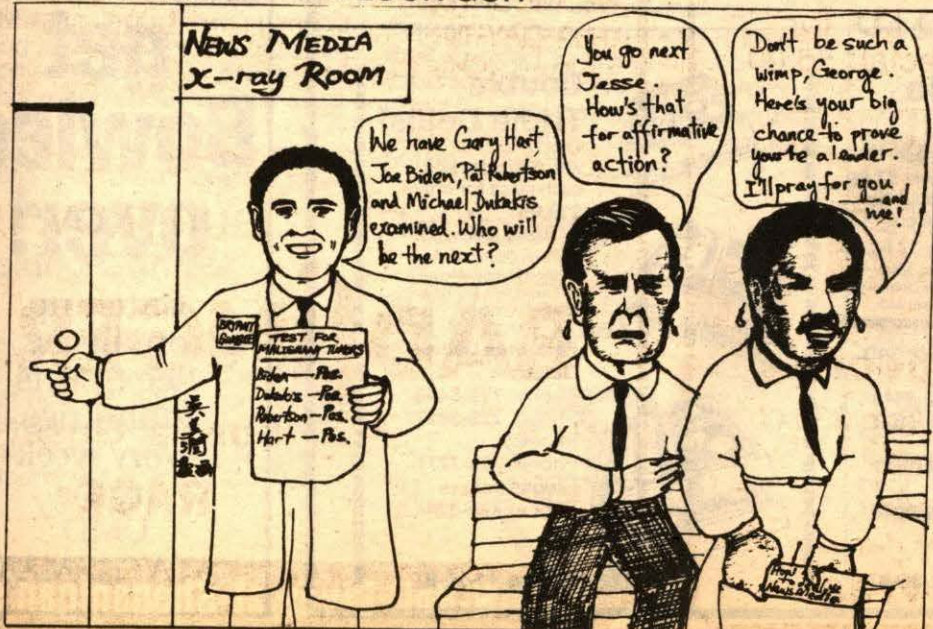 NEWS MEDIA
X-ray ROOM
We have Gary Hart,
Joe Biden, Pat Robertson
and Michael Dukakis
examined. Who will
be the next?
You go next
Jesse.
How's that
for affirmative
action?
Don't be such a
wimp, George.
Here's your big
chance to prove
you're a leader.
I'll pray for you
—and
me!
BRYANT
GUMBLE
TEST FOR
MALIGNANT TUMERS
Biden — Pos.
Dukakis — Pos.
Robertson — Pos.
Hart — Pos.
How
to
News Media